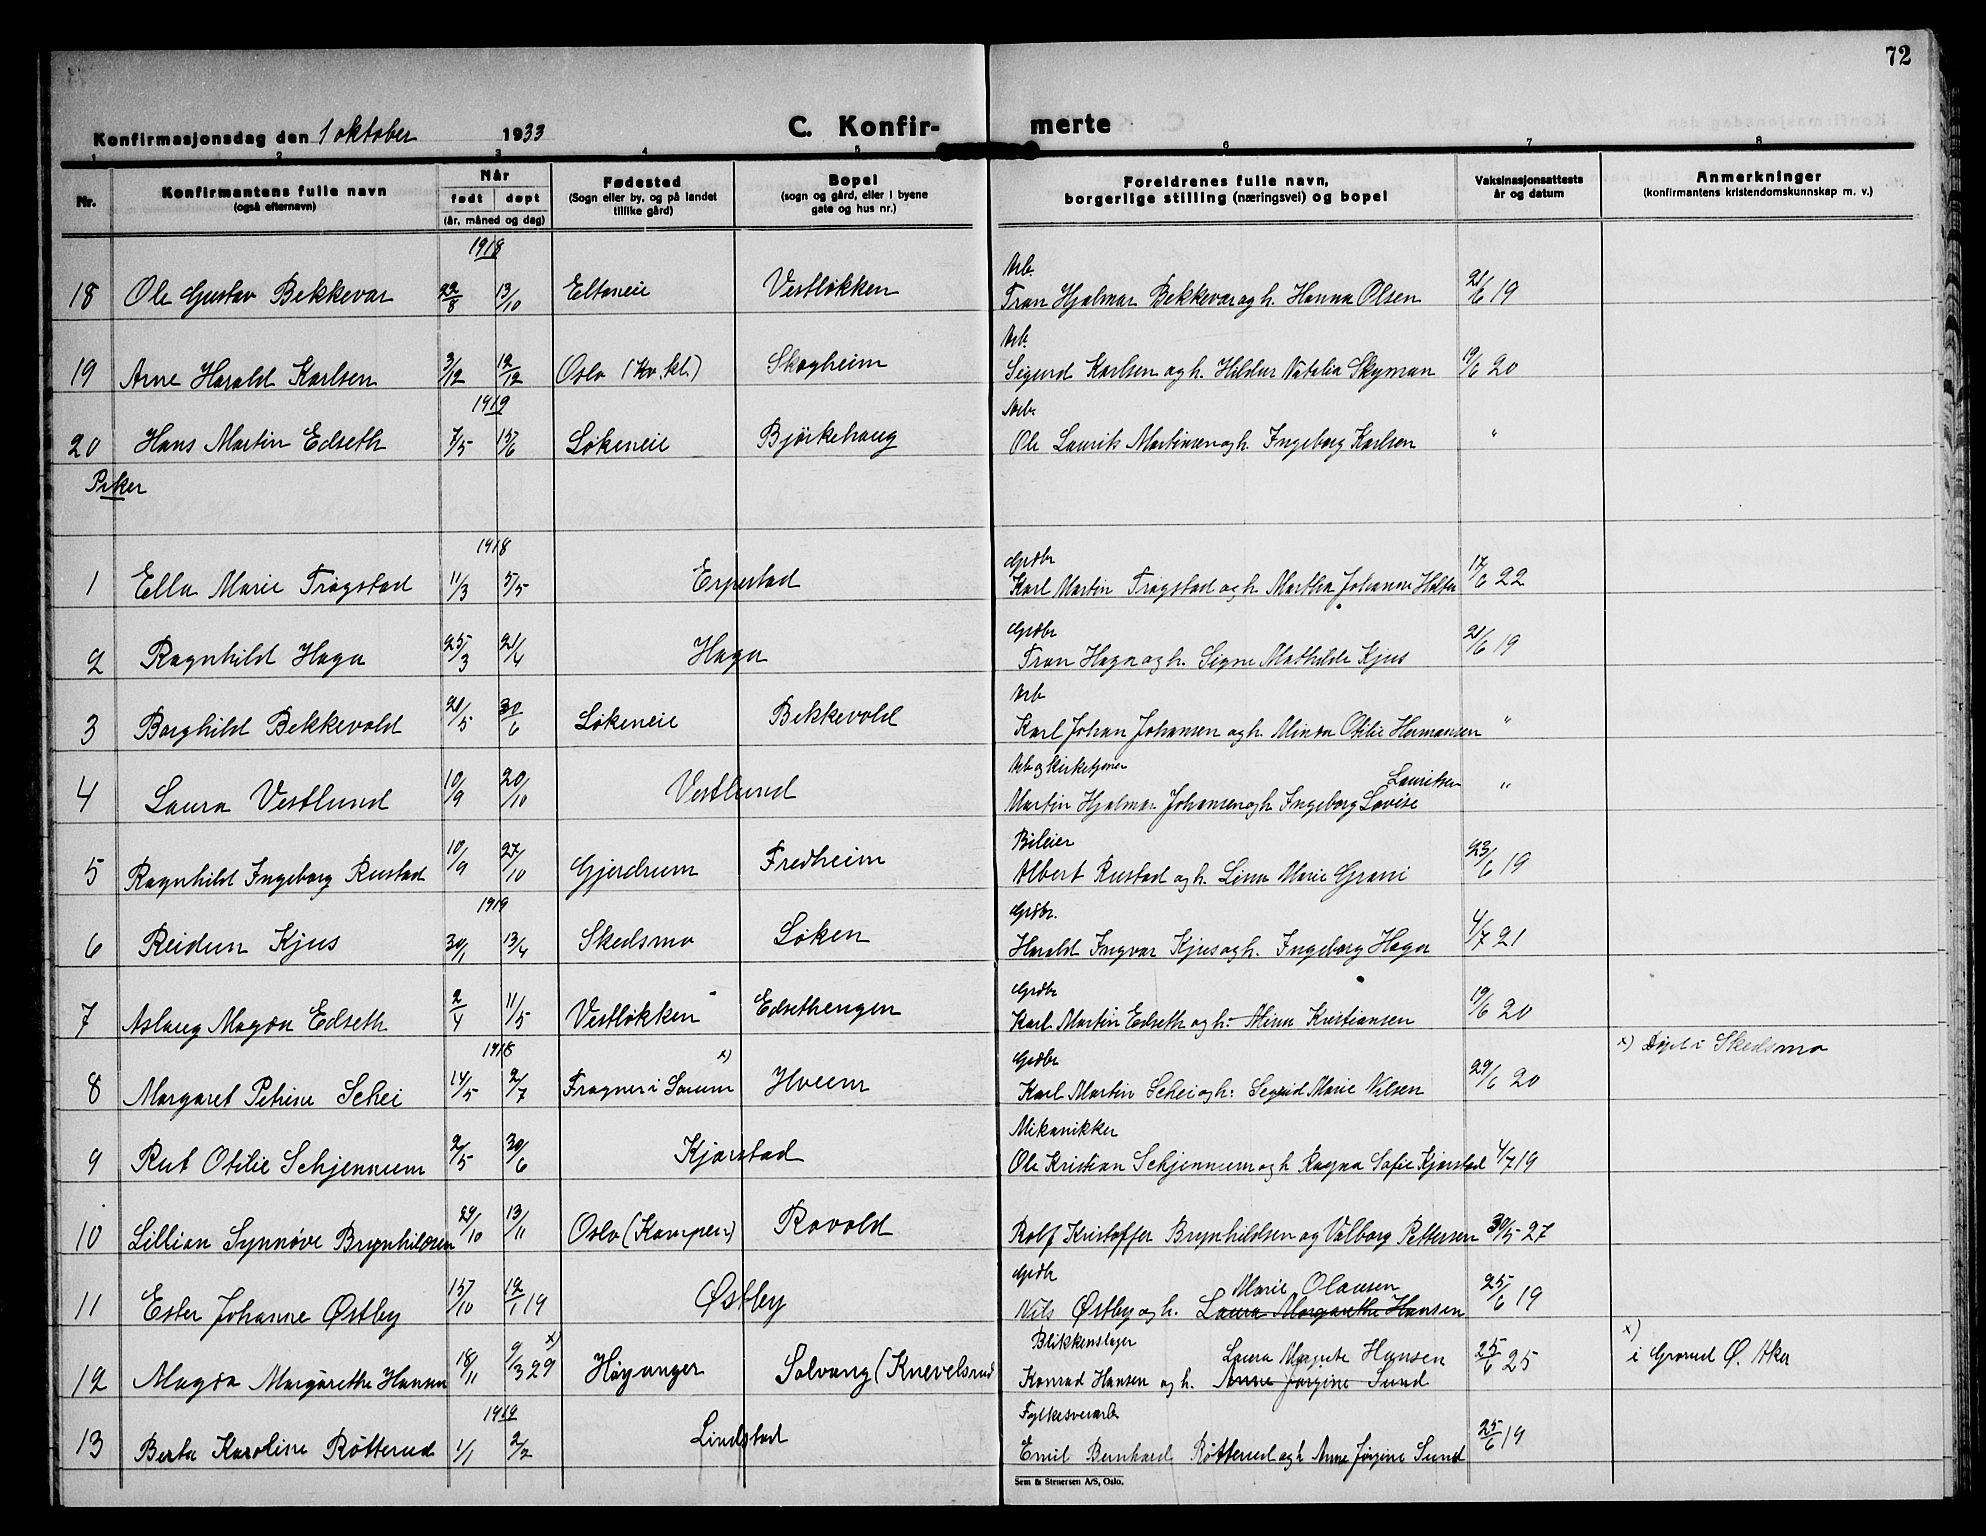 72
Konfirmasjonsdag den 1 oktober 1933 C. Konfir- merte
1 2 3 4 5 6 7 8
Nr. Konfirmantens fulle navn (også efternavn) Når født døpt (år, måned og dag) Fødested (Sogn eller by, og på landet tillike gård) Bopel (sogn og gård, eller i byene gate og hus nr.) Foreldrenes fulle navn, borgerlige stilling (næringsvei) og bopel Vaksinasjonsattests år og datum Anmerkninger (konfirmantens kristendomskunnskap m. v.)
1918
Arb.
18 Ole Gustav Bekkevar 22/8 13/10 Eltoneie Vestløkken Tron Hjalmar Bekkevar og h. Hanna Olsen 21/6 19
Arb.
19 Arne Harald Karlsen 3/12 12/12 Oslo (Kv.kl.) Skogheim Sigurd Karlsen og h. Hildur Natalia Skyman 19/6 20
1919
Arb.
20 Hans Martin Edseth 7/5 15/6 Løkeneie Bjørkehaug Ole Laurits Martinsen og h. Ingeborg Karlsen "
Piker
1918
Grdbr
1 Ella Marie Trøgstad 11/3 5/5 Erpestad Karl Martin Trøgstad og h. Martha Johanne Holter 17/6 22
Grdbr
2 Ragnhild Haga 25/3 21/4 Haga Tron Haga og h. Signe Mathilde Kjus 21/6 19
Arb
3 Borghild Bekkevold 21/5 30/6 Løkeneie Bekkevold Karl Johan Johansen og h. Minda Otilie Hermansen "
Arb og kirketjener
4 Laura Vestlund 10/9 20/10 Vestlund Martin Hjalmar Johansen og h. Ingeborg Lovise Lauritsen "
Bileier
5 Ragnhild Ingeborg Rustad 10/9 27/10 Gjerdrum Fredheim Albert Rustad og h. Lina Marie Grani 23/6 19
1919
Grdbr.
6 Reidun Kjus 30/1 13/4 Skedsmo Løken Harald Ingvar Kjus og h. Ingeborg Haga 4/7 21
Grdbr
7 Aslaug Magda Edseth 2/4 11/5 Vestløkken Edsethengen Karl Martin Edseth og h. Mina Kristiansen 19/6 20
1918
Grdbr x) Døpt i Skedsmo
8 Margaret Petrine Schei 14/5 2/7 Frogner i Sørum x) Hveem Karl Martin Schei og h: Sigrid Marie Nilsen 29/6 20
Mekanikker
9 Rut Otilie Schjennum 2/5 30/6 Kjørstad Ole Kristian Schjennum og h Ragna Sofie Kjørstad 4/7 19
10 Lillian Synnøve Brynhildsen 29/10 13/11 Oslo (Kampen) Rovold Rolf Kristoffer Brynhildsen og Valborg Pettersen 30/5 27
Grdbr Marie Olausen
11 Ester Johanne Østby 15/10 12/1 19 Østby Nils Østby og h. Laura Margarethe Hansen 25/6 19
Blikkenslager Laura Margrete Hansen x)
12 Magda Margarethe Hansen 18/11 9/3 29 x) Høyanger Solvang (Knevelsrud Konrad Hansen og h. Anne Jørgine Sund 25/6 25 i Grorud Ø. Aker
1919
Fylkesveiarb
13 Berta Karoline Røtterud 1/1 2/2 Lindstad Emil Bernhard Røtterud og h Anne Jørgine Sund 25/6 19
Sem & Stenersen A/S, Oslo.